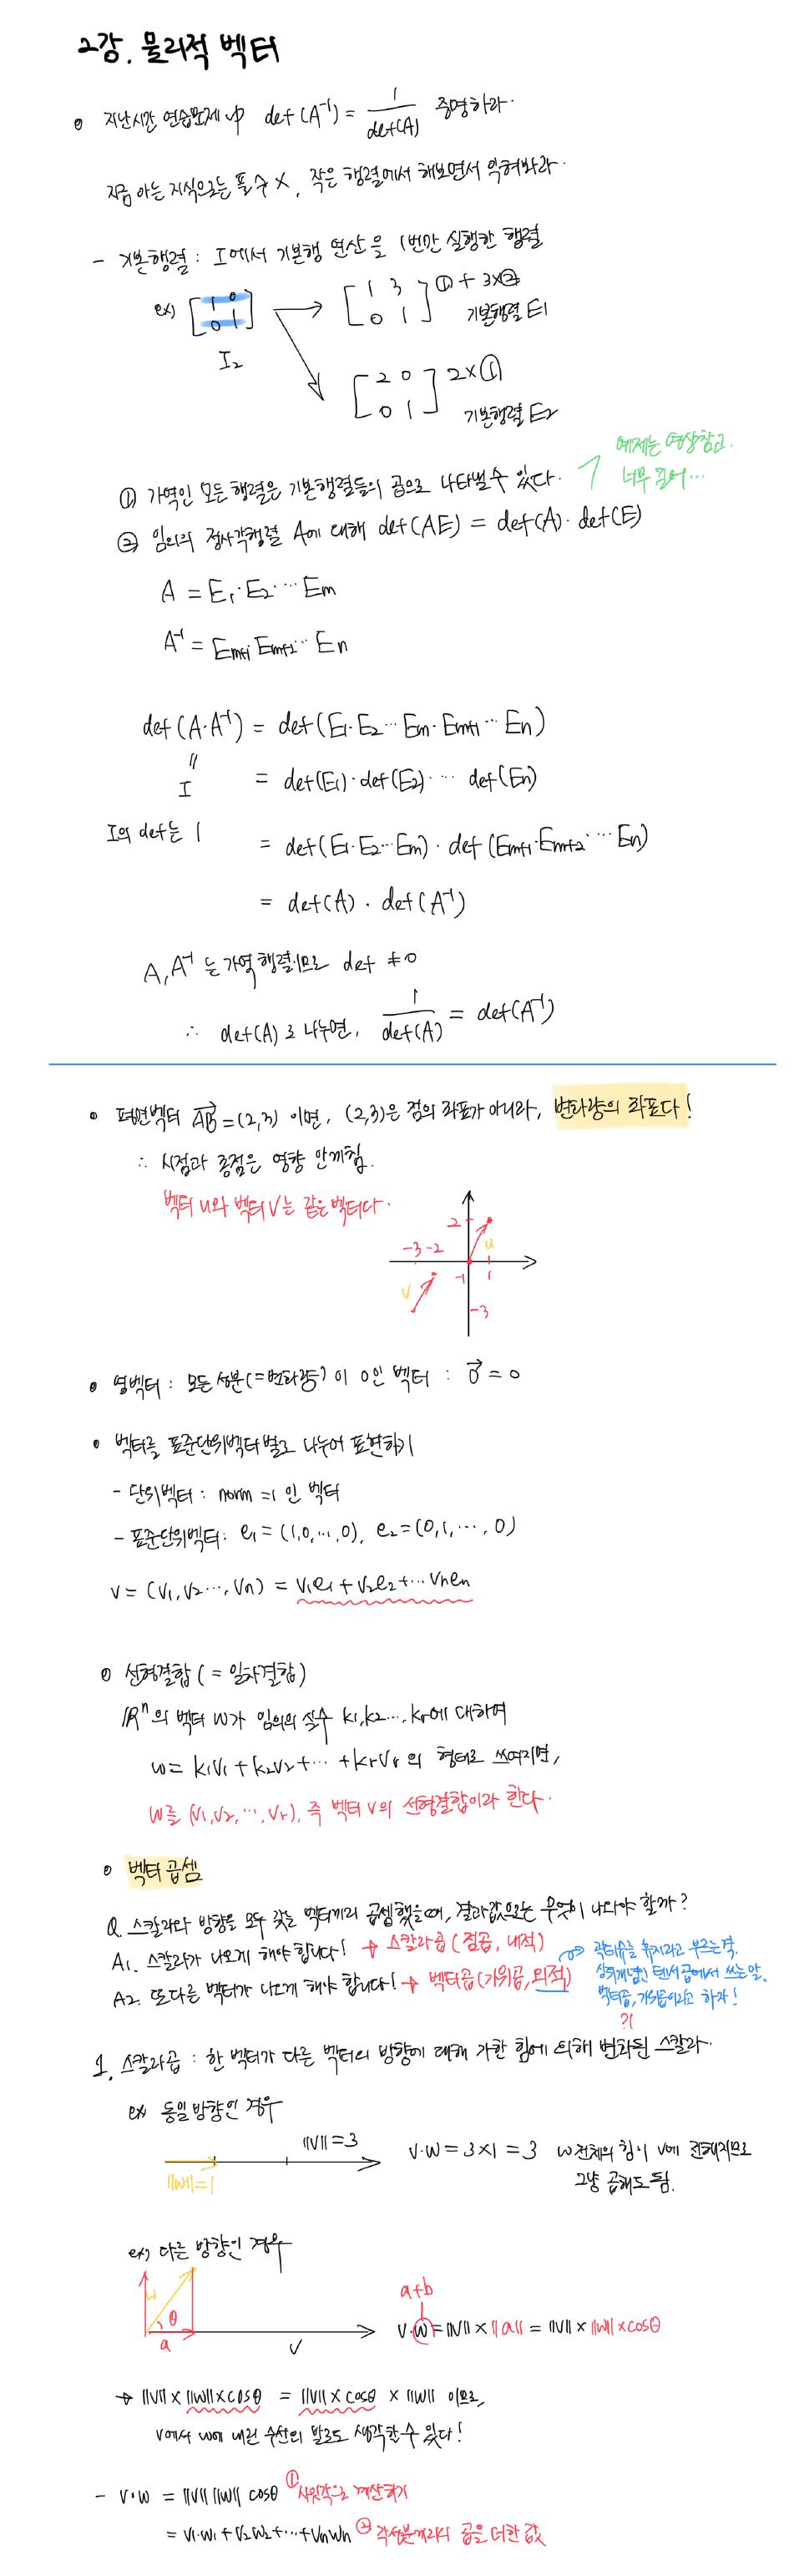 2강. 물리적 벡터
• 지난시간 연습문제 中 det(A⁻¹) = 1/det(A) 증명하라.
지금 아는 지식으로는 풀 수 X, 작은 행렬에서 해보면서 익혀봐라.
- 기본행렬 : I에서 기본행 연산을 1번만 실행한 행렬
ex) [1 0; 0 1] → [1 3; 0 1] ①+3×②
I₂ 기본행렬 E1
[2 0; 0 1] 2×①
기본행렬 E2
예제는 영상참고.
너무 길어...
① 가역인 모든 행렬은 기본행렬들의 곱으로 나타낼 수 있다.
② 임의의 정사각행렬 A에 대해 det(AE) = det(A)·det(E)
A = E₁·E₂···Em
A⁻¹ = Em+1 Em+2···En
det(A·A⁻¹) = det(E1·E2···Em·Em+1···En)
"
I = det(E1)·det(E2)· ··· det(En)
I의 det는 1 = det(E1·E2···Em)·det(Em+1·Em+2···En)
= det(A)·det(A⁻¹)
A, A⁻¹는 가역행렬이므로 det ≠ 0
∴ det(A)로 나누면, 1/det(A) = det(A⁻¹)
• 평면벡터 AB→ = (2,3) 이면, (2,3)은 점의 좌표가 아니라, 변화량의 좌표다!
∴ 시점과 종점은 영향 안끼침.
벡터 u와 벡터 v는 같은 벡터다.
2
u
-3 -2
-1 1
v
-3
• 영벡터 : 모든 성분(=변화량)이 0인 벡터 : 0→ = 0
• 벡터를 표준단위벡터별로 나누어 표현하기
- 단위벡터 : norm = 1 인 벡터
- 표준단위벡터 : e₁ = (1,0,...,0), e₂ = (0,1,...,0)
v = (v₁,v₂...,vn) = v₁e₁+v₂e₂+...vnen
• 선형결합 (= 일차결합)
ℝⁿ의 벡터 w가 임의의 실수 k₁,k₂...,kr에 대하여
w = k₁v₁+k₂v₂+···+krvr 의 형태로 쓰여지면,
w를 (v₁,v₂,...,vr), 즉 벡터 v의 선형결합이라 한다.
• 벡터 곱셈
Q. 스칼라와 방향을 모두 갖는 벡터끼리 곱셈했을때, 결과값으로는 무엇이 나와야 할까?
A1. 스칼라가 나오게 해야 합니다! → 스칼라곱 (점곱, 내적)
A2. 또다른 벡터가 나오게 해야 합니다! → 벡터곱 (가위곱, 외적)
상위개념인 텐서곱에서 쓰는 말.
벡터곱, 가위곱이라고 하자!
?!
1. 스칼라곱 : 한 벡터가 다른 벡터의 방향에 대해 가한 힘에 의해 변화된 스칼라.
ex) 동일 방향인 경우
‖v‖=3
‖w‖=1
v·w = 3×1 = 3 w전체의 힘이 v에 전해지므로
그냥 곱해도 됨.
ex) 다른 방향인 경우
w
θ
a
v
a+b
v·w = ‖v‖ × ‖a‖ = ‖v‖ × ‖w‖×cosθ
→ ‖v‖ × ‖w‖×cosθ = ‖v‖ × cosθ × ‖w‖ 이므로,
v에서 w에 내린 수선의 발로도 생각할 수 있다!
- v·w = ‖v‖ ‖w‖ cosθ ① 사잇각으로 계산하기
= v₁·w₁+v₂w₂+···+vnwn ② 각 성분끼리의 곱을 더한 값